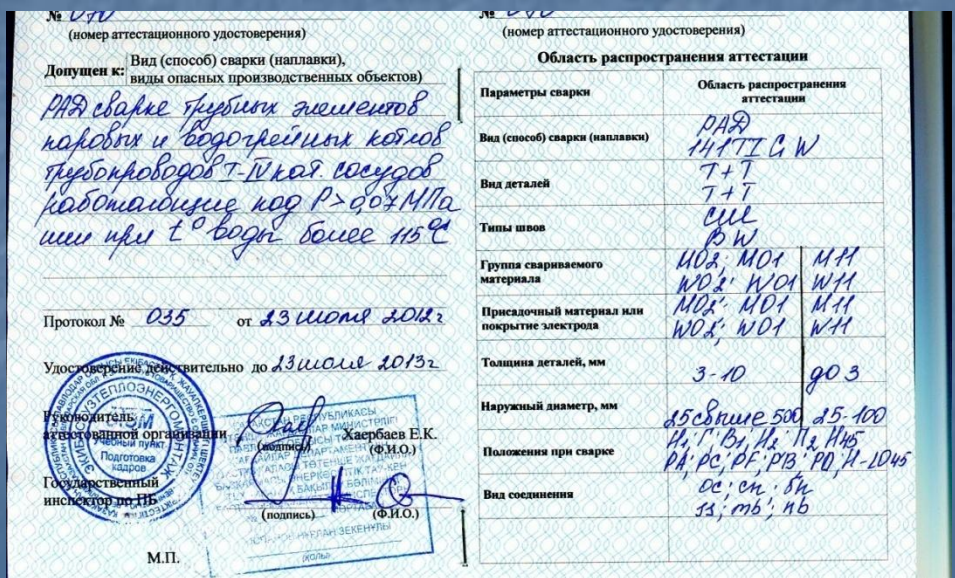 № 070
(номер аттестационного удостоверения)
Допущен к: Вид (способ) сварки (наплавки),
виды опасных производственных объектов)
РАД сварке трубных элементов
паровых и водогрейных котлов
трубопроводов I-IV кат. сосудов
работающие под P > 0,07 МПа
или при t° воды более 115°C
Протокол № 035 от 23 июля 2012г
Удостоверение действительно до 23 июля 2013г
Руководитель
аттестованной организации
(подпись)
Хаербаев Е.К.
(Ф.И.О.)
Государственный
инспектор по ПБ
(подпись)
(Ф.И.О.)
М.П.
ЭКИБАСТУЗТЕПЛОЭНЕРГОМОНТАЖ
Учебный пункт
Подготовка
кадров
№ 070
(номер аттестационного удостоверения)
Область распространения аттестации
Параметры сварки Область распространения
аттестации
Вид (способ) сварки (наплавки) РАД
141 TIG W
Вид деталей Т+Т
Т+Т
Типы швов СШ
BW
Группа свариваемого
материала
М02; М01 М11
W02; W01 W11
Присадочный материал или
покрытие электрода
М02; М01 М11
W02; W01 W11
Толщина деталей, мм 3-10 до 3
Наружный диаметр, мм 25 свыше 500 25-100
Положения при сварке Н1, Г, В1, Н2, П2, Н45
PA; PC; PF; PB; PD; H-L045
Вид соединения ос; сп; бп
ss; mb; nb